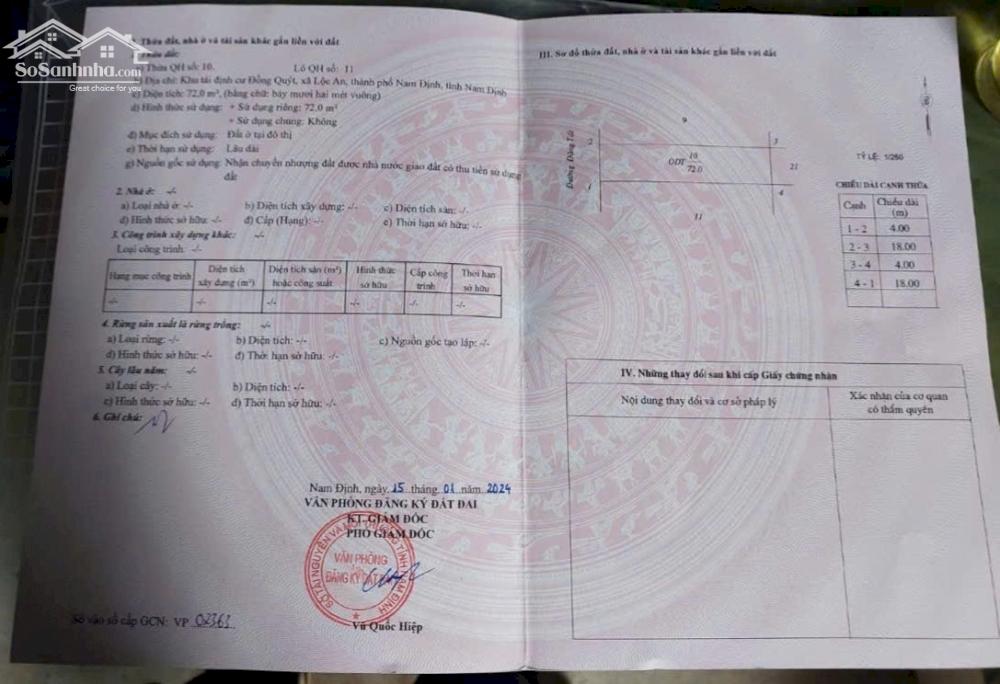 SoSanhnha.com
Great choice for you
Thửa đất, nhà ở và tài sản khác gắn liền với đất
Thửa đất:
a) Thửa QH số: 10. Lô QH số: 11
b) Địa chỉ: Khu tái định cư Đồng Quýt, xã Lộc An, thành phố Nam Định, tỉnh Nam Định
c) Diện tích: 72.0 m², (bằng chữ: bảy mươi hai mét vuông)
d) Hình thức sử dụng: + Sử dụng riêng: 72.0 m²
+ Sử dụng chung: Không
đ) Mục đích sử dụng: Đất ở tại đô thị
e) Thời hạn sử dụng: Lâu dài
g) Nguồn gốc sử dụng: Nhận chuyển nhượng đất được nhà nước giao đất có thu tiền sử dụng
đất
2. Nhà ở: -/-
a) Loại nhà ở: -/- b) Diện tích xây dựng: -/- c) Diện tích sàn: -/-
d) Hình thức sở hữu: -/- đ) Cấp (Hạng): -/- e) Thời hạn sở hữu: -/-
3. Công trình xây dựng khác: -/-
Loại công trình: -/-
Hạng mục công trình Diện tích xây dựng (m²) Diện tích sàn (m²) hoặc công suất Hình thức sở hữu Cấp công trình Thời hạn sở hữu
-/- -/- -/- -/- -/- -/-
4. Rừng sản xuất là rừng trồng: -/-
a) Loại rừng: -/- b) Diện tích: -/- c) Nguồn gốc tạo lập: -/-
d) Hình thức sở hữu: -/- đ) Thời hạn sở hữu: -/-
5. Cây lâu năm: -/-
a) Loại cây: -/- b) Diện tích: -/-
c) Hình thức sở hữu: -/- d) Thời hạn sở hữu: -/-
6. Ghi chú:
Nam Định, ngày 15 tháng 01 năm 2024
VĂN PHÒNG ĐĂNG KÝ ĐẤT ĐAI
KT.GIÁM ĐỐC
PHÓ GIÁM ĐỐC
VĂN PHÒNG
ĐĂNG KÝ ĐẤT
Vũ Quốc Hiệp
Số vào sổ cấp GCN: VP 02363
III. Sơ đồ thửa đất, nhà ở và tài sản khác gắn liền với đất
9
Đường Đặng Tất
2
3
ODT 10
72.0
21
1
4
11
TỶ LỆ: 1/250
CHIỀU DÀI CẠNH THỬA
Cạnh Chiều dài (m)
1 - 2 4.00
2 - 3 18.00
3 - 4 4.00
4 - 1 18.00
IV. Những thay đổi sau khi cấp Giấy chứng nhận
Nội dung thay đổi và cơ sở pháp lý
Xác nhận của cơ quan
có thẩm quyền